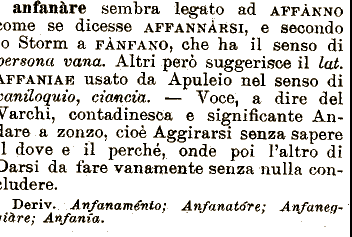 anfanàre sembra legato ad AFFÀNNO
come se dicesse AFFANNÀRSI, e secondo
lo Storm a FÀNFANO, che ha il senso di
persona vana. Altri però suggerisce il lat.
AFFANIAE usato da Apuleio nel senso di
vaniloquio, ciancia. — Voce, a dire del
Varchi, contadinesca e significante An-
dare a zonzo, cioè Aggirarsi senza sapere
il dove e il perché, onde poi l'altro di
Darsi da fare vanamente senza nulla con-
cludere.
Deriv. Anfanaménto; Anfanatóre; Anfaneg-
giàre; Anfanìa.